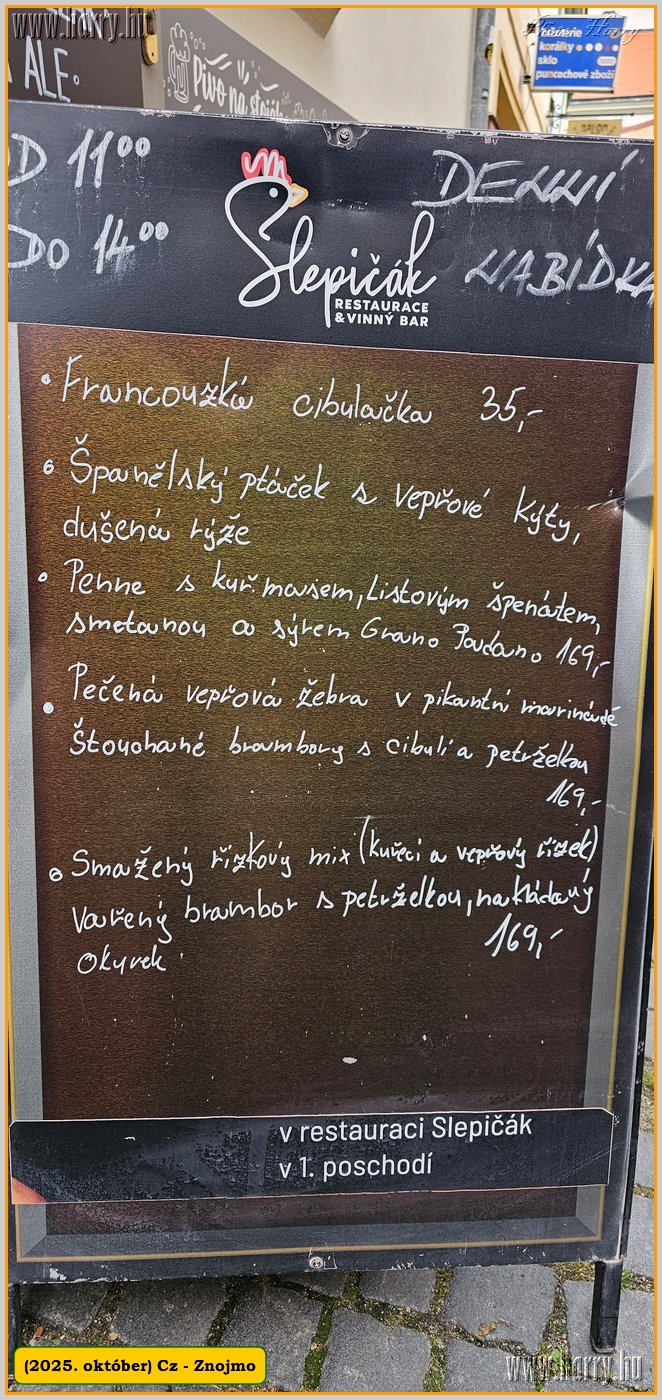 www.harry.hu
ALE.
Pivo na stojáka
Galanterie
korálky
sklo
puncochové zboží
SALON
OD 11⁰⁰
DO 14⁰⁰
Slepičák
RESTAURACE
& VINNÝ BAR
DENNÍ
NABÍDKA
• Francouzká cibulačka 35,-
• Španělský ptáček s vepřové kýty,
dušená rýže
• Penne s kuř. masem, listovým špenátem,
smetanou a sýrem Grano Padano 169,-
• Pečená vepřová žebra v pikantní marinádě
Štouchané brambory s cibulí a petrželkou
169,-
• Smažený řízkový mix (kuřecí a vepřový řízek)
Vařený brambor s petrželkou, nakládaný
okurek 169,-
v restauraci Slepičák
v 1. poschodí
(2025. október) Cz - Znojmo
www.harry.hu